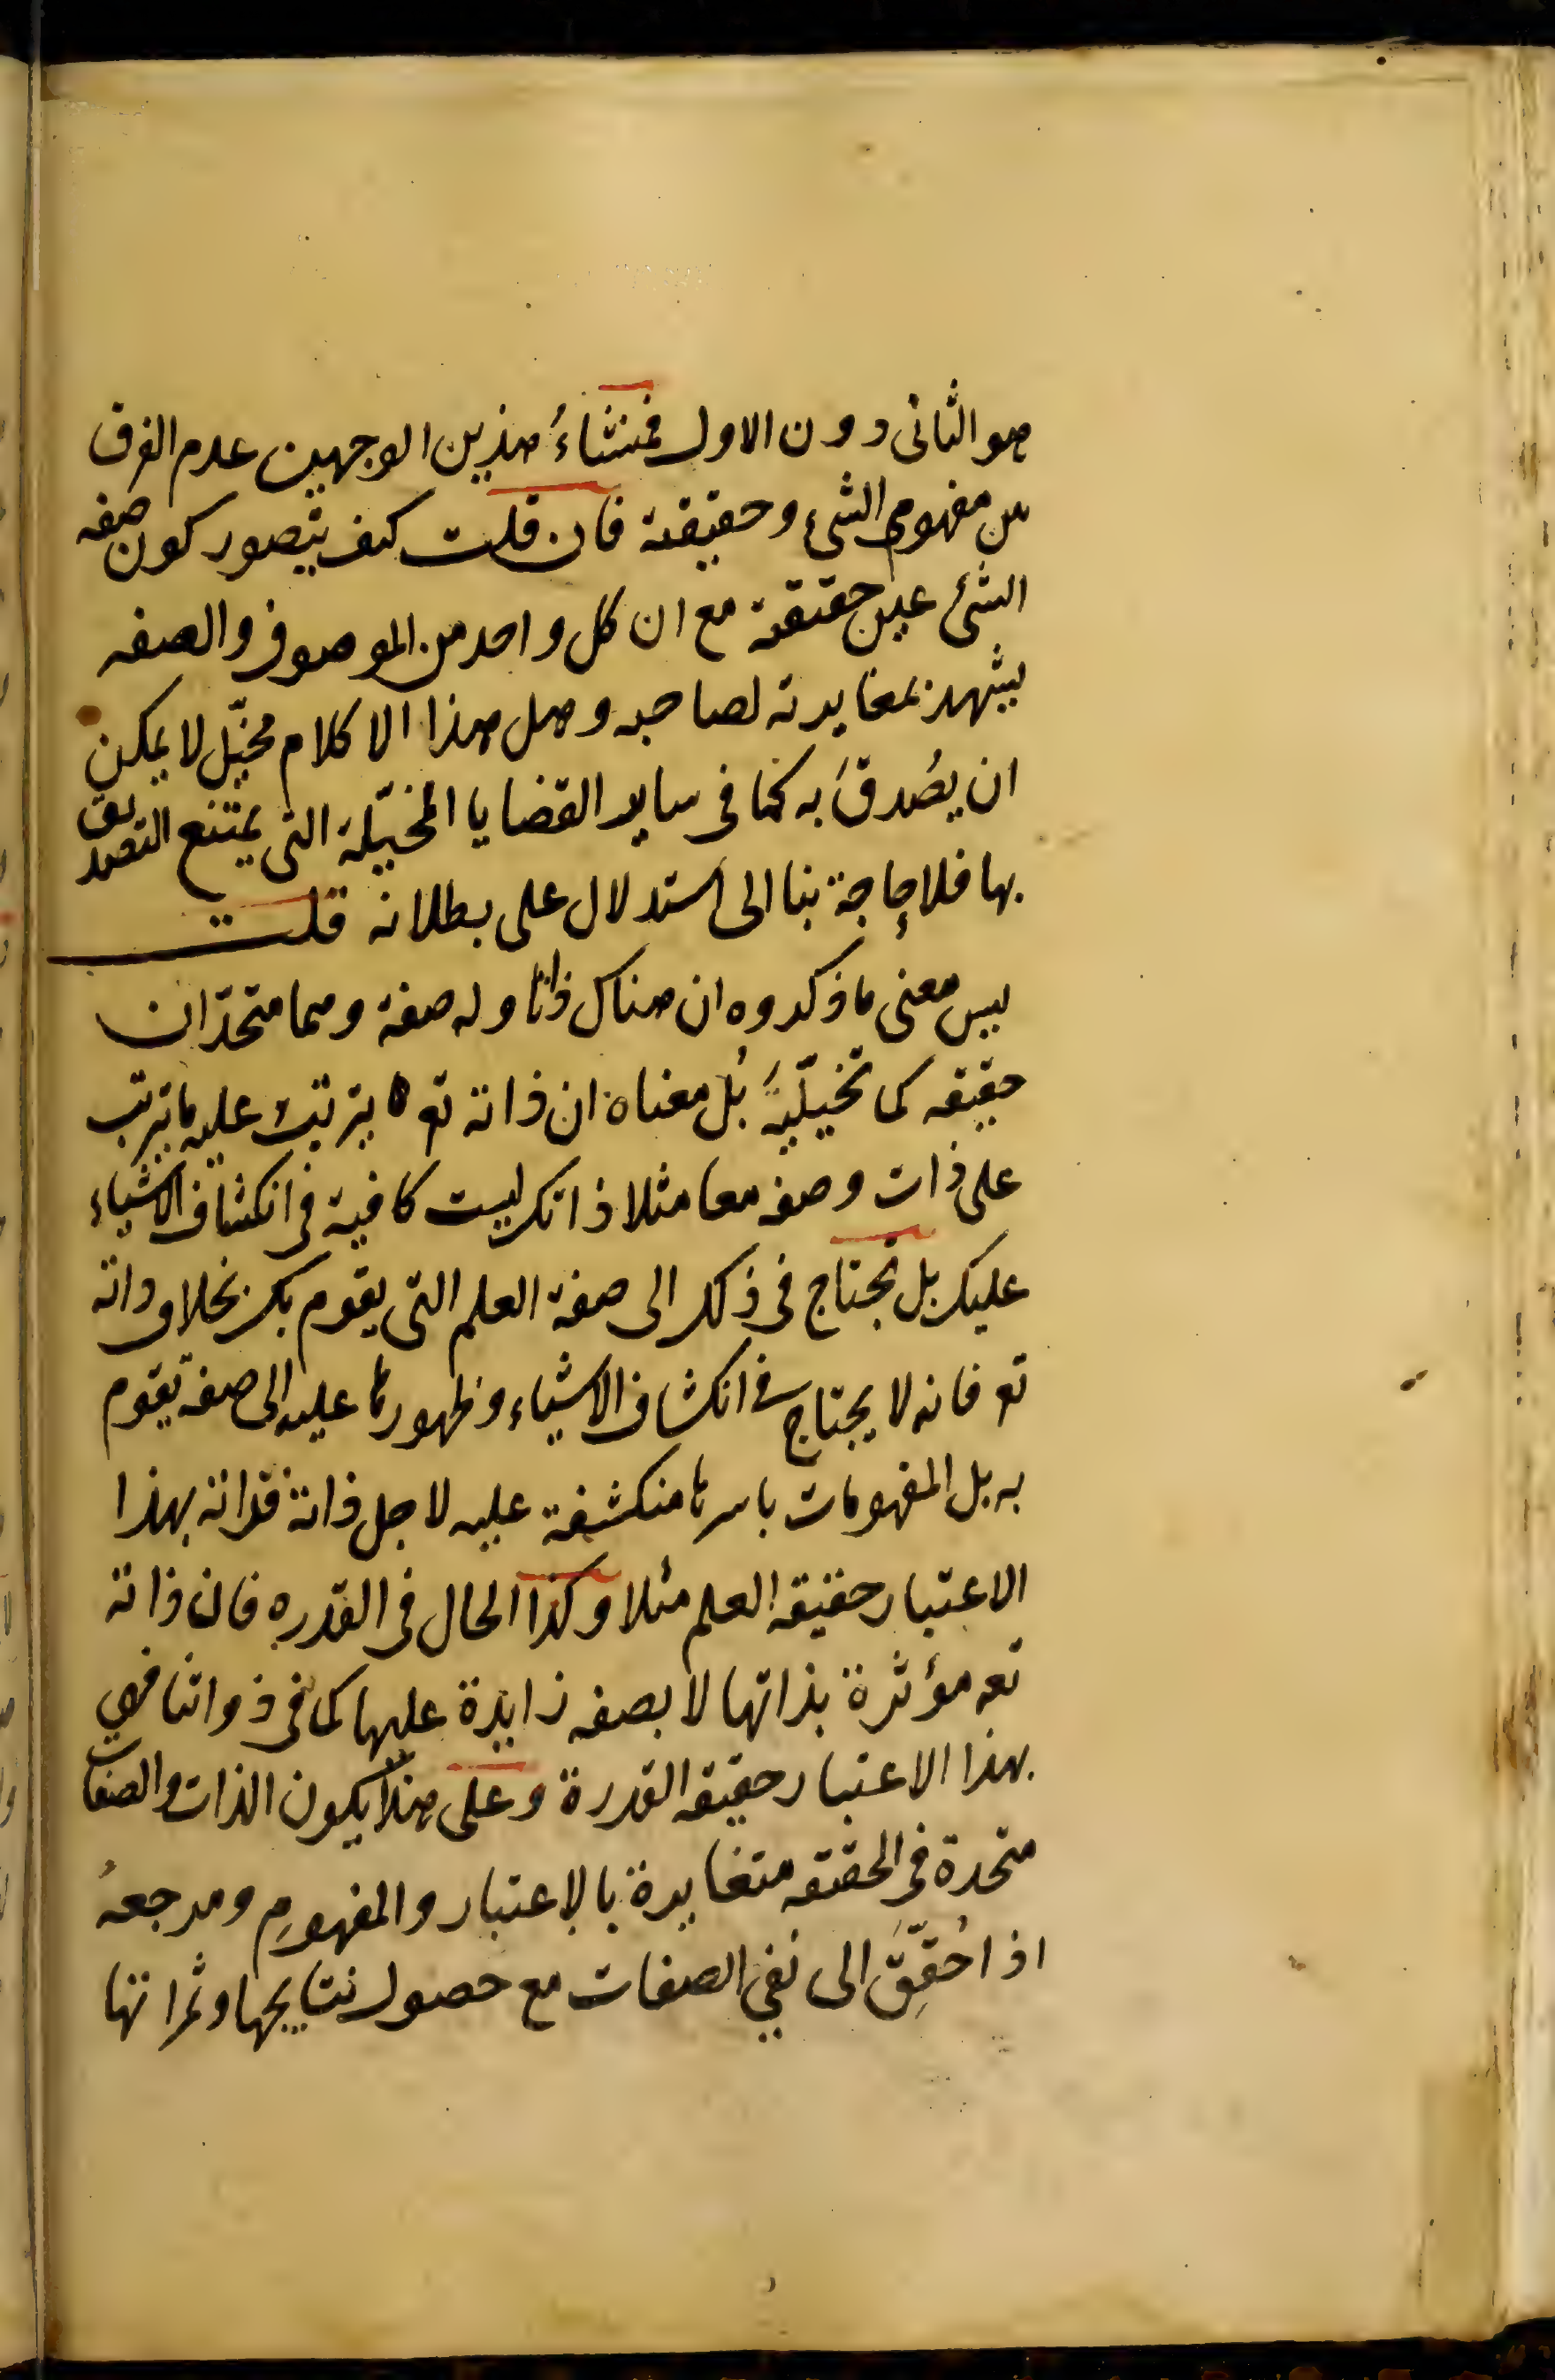 هو الثانى دون الاول فمنشاءُ هذين الوجهين عدم الفرق
بين مفهومى الشىء وحقيقته فان قلت كيف يتصور كون صفه
الشئ عين حقيقته مع ان كل واحد من الموصوف والصفه
يشهد بمغايرته لصاحبه وهل هذا الا كلام مخيّل لا يمكن
ان يصُدقَ به كما فى ساير القضايا المخيّلة التى يمتنع التصديق
بها فلا حاجة بنا الى استدلال على بطلانه قلت
ليس معنى ما ذكروه ان هناك ذاتا وله صفة وهما متحدّان
حقيقه كما تخيّليهَ بل معناه ان ذاته تع يترتب عليه ما يترتب
على ذات وصفه معا مثلا ذاتك ليست كافية فى انكشاف الاشياء
عليك بل تحتاج فى ذلك الى صفة العلم التى يقوم بك بخلاف ذاته
تع فانه لا يحتاج فى انكشاف الاشياء وظهورها عليه الى صفة تقوم
به بل المفهومات باسرها منكشفة عليه لاجل ذاته فذاته بهذا
الاعتبار حقيقه العلم مثلا وكذا الحال فى القدره فان ذاته
تعه مؤثرة بذاتها لا بصفه زايدة عليها كما فى ذواتنا فهي
بهذا الاعتبار حقيقه القدرة وعلى هذا يكون الذات والصفات
متحدة فى الحقيقه متغايرة بالاعتبار والمفهومِ ومرجعهُ
اذا حُقِّقَ الى نفى الصفات مع حصول نتايجها وثمراتها